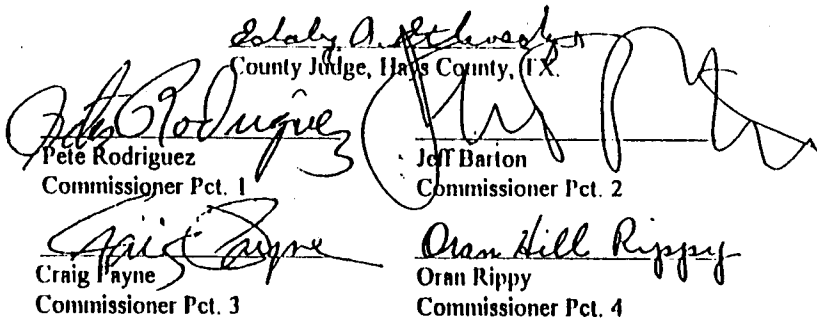 County Judge, Hays County, TX.
Pete Rodriguez
Pete Rodriguez
Commissioner Pct. 1
Jeff Barton
Commissioner Pct. 2
Craig Payne
Craig Payne
Commissioner Pct. 3
Oran Hill Rippy
Oran Rippy
Commissioner Pct. 4